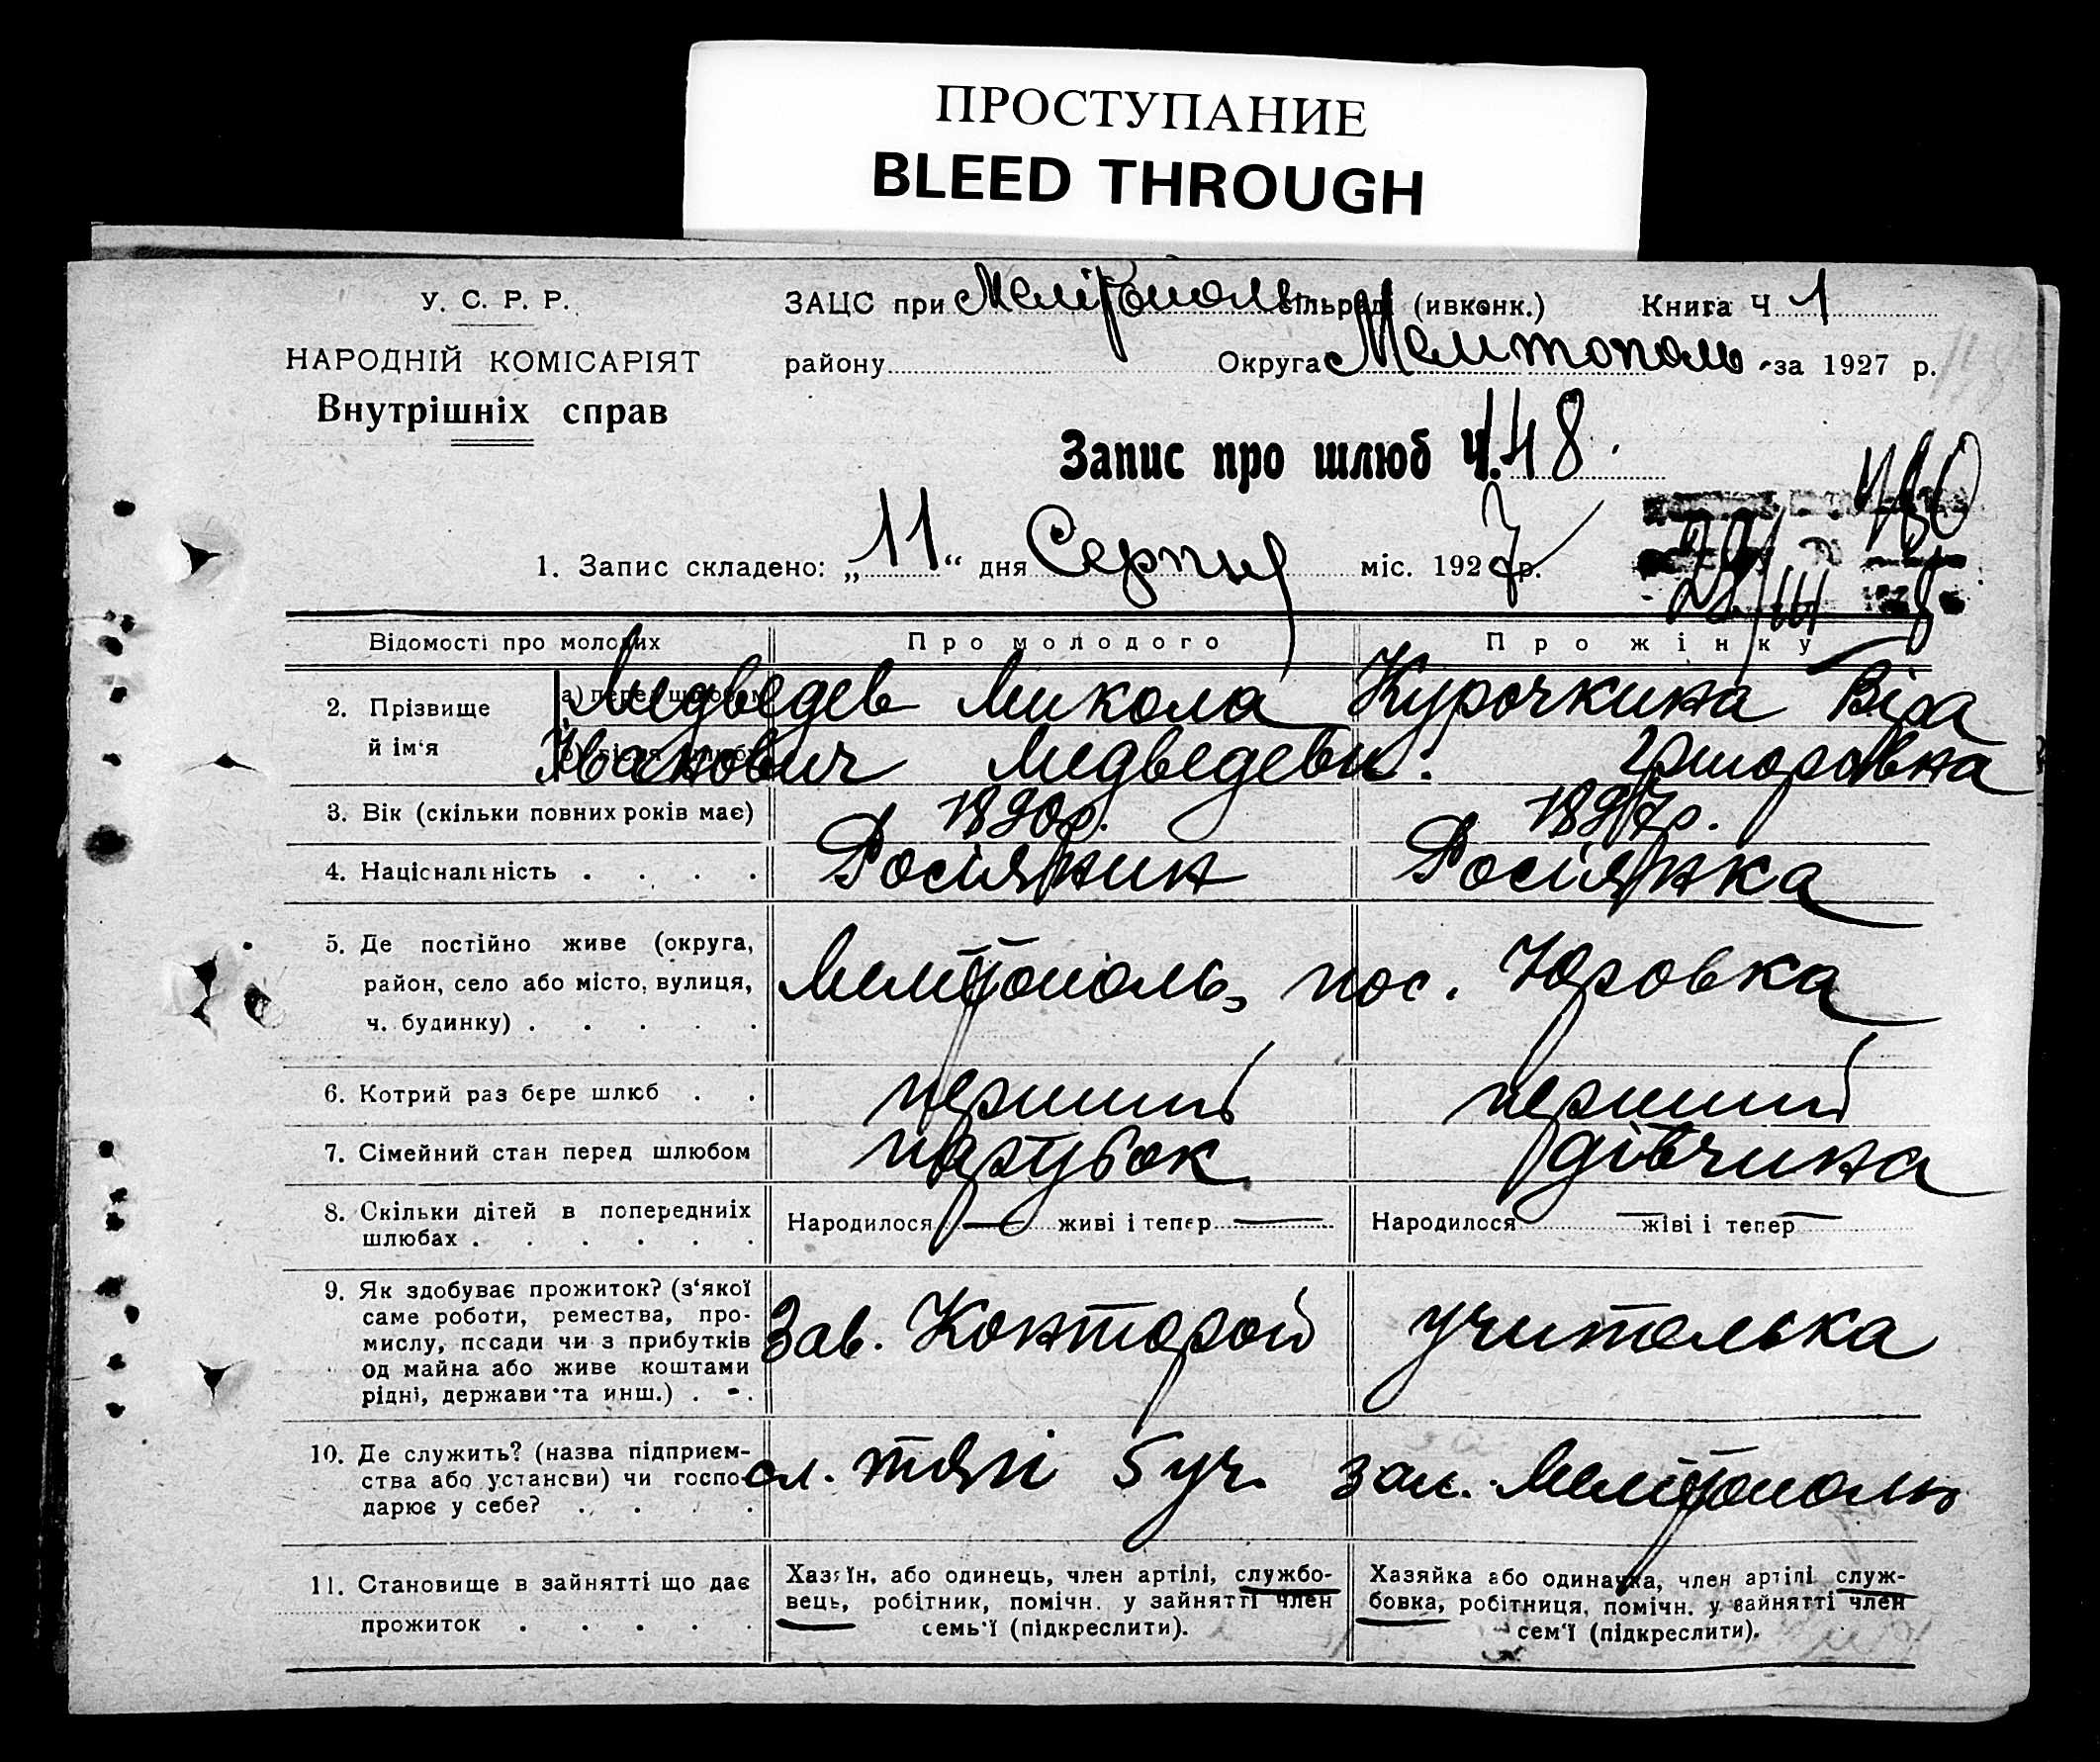 ПРОСТУПАНИЕ
BLEED THROUGH
У. С. Р. Р.
НАРОДНІЙ КОМІСАРІЯТ
Внутрішніх справ
ЗАЦС при Мелітополь сільраді (ивконк.) Книга Ч 1
району Округа Мелитополь за 1927 р.
Запис про шлюб Ч. 148.
1. Запис складено: „11“ дня Серпня міс. 1927 р.
Відомості про молодих Про молодого Про жінку
2. Прізвище й ім‘я
а) перед шлюбом
Медведев Микола Курочкина Віра
Іванович Медведевы. Григоровна
3. Вік (скільки повних років має) 1890р. 1897р.
4. Національність Росіянин Росіянка
5. Де постійно живе (округа, район, село або місто, вулиця, ч. будинку) Мелітополь, пос. Юровка
6. Котрий раз бере шлюб перший перший
7. Сімейний стан перед шлюбом парубок дівчина
8. Скільки дітей в попередніх шлюбах Народилося — живі і тепер — Народилося — живі і тепер —
9. Як здобуває прожиток? (з‘якої саме роботи, ремества, промислу, посади чи з прибутків од майна або живе коштами рідні, держави та инш.) Зав. Конторой учителька
10. Де служить? (назва підприємства або установи) чи господарює у себе? сл. тяги 5 уч. зал. Мелітополь
11. Становище в зайнятті що дає прожиток
Хазяїн, або одинець, член артілі, службовець, робітник, помічн. у зайнятті член семь‘ї (підкреслити).
Хазяйка або одиначка, член артілі службовка, робітниця, помічн. у зайнятті член сем‘ї (підкреслити).